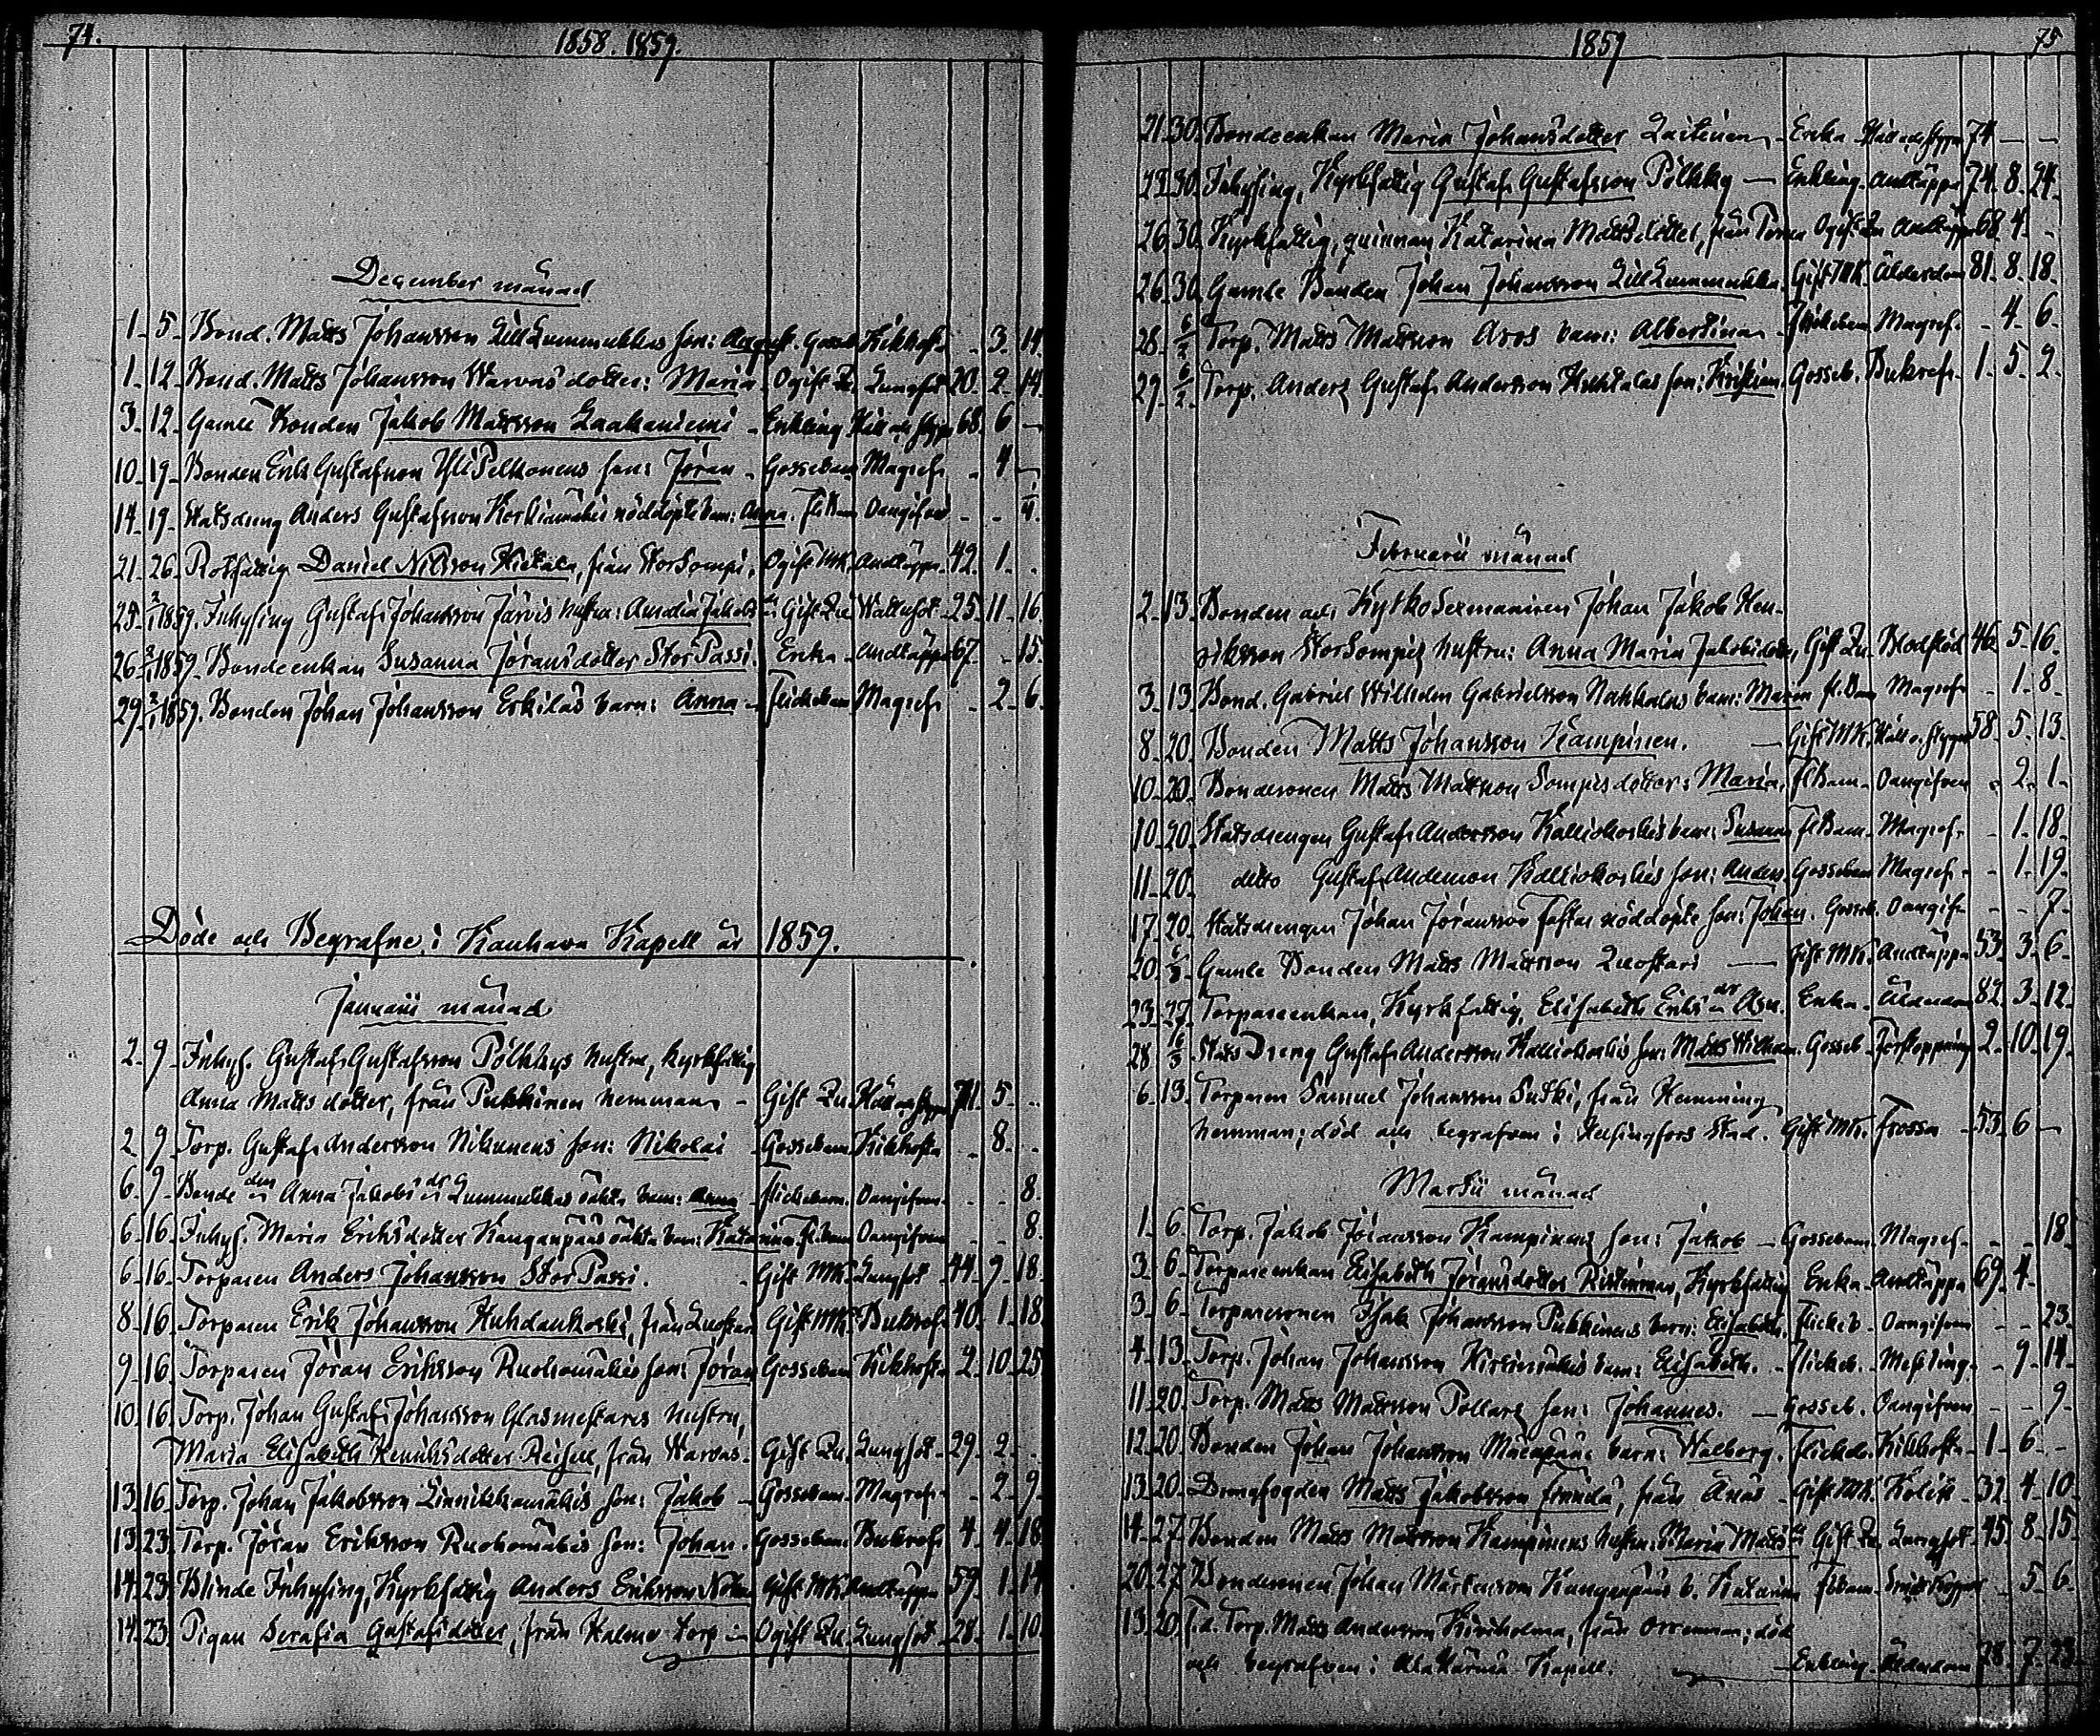 74.
1858. 1859.
December månad
1. 5. Bond. Matts Johansson Lill Lummukkas son: August. Gosseb. Kikhosta - 3. 14.
1. 12. Bond. Matts Johansson Warvas dotter: Maria. Ogift Qu. Lungsot 20. 2. 14.
3. 12. Gamle Bonden Jakob Mattsson Laakaniemi - Enkling Håll och stygn 68. 6 -
10. 19. Bonden Erik Gustafsson Yli Pelkonens son: Jöran - Gossebarn Magref - 4 -
14. 19. Statsdreng Anders Gustafsson Korkiamäkis nöddöpte barn: Anna. Fl. Barn Oangifven - -
21. 26. Rotfattig Daniel Nilsson Hietala, från StorSompi. Ogift MK. Andtäppa 42. 1. -
25. 2/1 1859. Inhysing Gustaf Johansson Jårvis hustru: Amalia Jakobs dr Gift Qu. Wattusot 25. 11. 16.
26. 2/1 1859. Bondeenkan Susanna Jöransdotter StorPassi. Enka - Andtäppa 67. - 15.
29. 2/1 1859. Bonden Johan Johansson Erkiläs barn: Anna - Flickebarn Magref - 2. 6.
Döde och Begrafne i Kauhava Kapell år 1859.
Januarii månad
2. 9. Inhys. Gustaf Gustafsson Pölkkys hustru, kyrkfattig
Anna Matts dotter, från Pukkinen hemman - Gift Qu. Håll och stygn 71. 5. -
2. 9. Torp. Gustaf Andersson Nikunens son: Nikolai - Gossebarn Kikhosta - 8. -
6. 9. Bonde den Anna Jakobs dr Lummukkas oäkta barn: Anna - Flickebarn. Oangifven - - 8.
6. 16. Inhys. Maria Eriksdotter Kanganpääs oäkta barn: Katarina Fl. barn Oangifven - - 8.
6. 16. Torparen Anders Johansson StorPassi. - Gift MK. Lungsot 44. 9. 18.
8. 16. Torparen Erik Johansson Huhdankoski, från Luostari Gift MK. Bukref 40. 1. 18.
9. 16. Torparen Jöran Eriksson Ruohomäkis son: Jöran Gossebarn Kikhosta 2. 10. 25.
10. 16. Torp. Johan Gustaf Johansson Glasmestares hustru,
Maria Elisabeth Henriksdotter Reisell, från Warvas. Gift Qu. Lungsot 29. 2. -
13. 16. Torp. Johan Jakobsson Linnikkamäkis son: Jakob - Gossebarn Magref - 2. 9.
13. 23. Torp. Jöran Eriksson Ruohomäkis son: Johan. Gossebarn Bukref 4. 4. 18.
14. 23. Blinde Inhysing, Kyrkfattig Anders Eriksson Gift MK. Andtäppa 59. 1. 14
14. 23. Pigan Serafia Gustafsdotter, från Kalmo torp - Ogift Qu. Lungsot 28. 1. 10.
1859
75
21. 30. Bondeenkan Maria Johansdotter Laitinen - Enka - Håll och stygn 74 - -
23. 30. Inhysing, Kyrkfattig Gustaf Gustafsson Pölkky - Enkling. Andtäppa 74. 8. 24.
26. 30. Kyrkfattig, quinnan Katarina Mattsdotter, från Ogift Qu Andtäppa 68. 4. -
26. 30. Gamle Bonden Johan Johansson Lill Lummukka. Gift MK. Ålderdom 81. 8. 18.
28. 6/2 Torp. Matts Mattsson Aros barn: Albertina - Flickebarn Magref. - 4. 6.
29. 6/2 Torp. Anders Gustaf Andersson Huhtalas son: Kristian. Gosseb. Bukref. 1. 5. 2.
Februarii månad
2. 13. Bonden och Kyrko Sexmannen Johan Jakob Hen-
riksson StorSompis hustru: Anna Maria Jakobsdotter, Gift Qu. Blodstöd 46. 5. 16.
3. 13. Bond. Gabriel Wilhelm Gabrielsson Nahkalas barn: Maria fl. Barn Magref - 1. 8.
8. 20. Bonden Matts Johansson Kampinen. - Gift MK. Håll o. stygn 58. 5. 13.
10. 20. Bondesonen Matts Mattsson Sompis dotter: Maria, fl Barn. Oangifven - 2. 1.
10. 20. Statsdrengen Gustaf Andersson Kalliokoskis barn: Susanna fl Barn. Magref - 1. 18.
11. 20. ditto Gustaf Andersson Kalliokoskis son: Anders. Gossebarn Magref - 1. 19.
17. 20. Statsdrengen Johan Jöransson nöddöpte son: Johan. Gosseb. Oangif. - - 7.
20. 6/3. Gamle Bonden Matts Mattsson Luostari - Gift MK. Andtäppa 53. 3. 6.
23. 27. Torpareenkan, Kyrkfattig, Elisabeth Eriks dr Enka. Ålderdom 82. 3. 12.
28. Stats Dreng Gustaf Andersson Kalliokoskis son: Matts Wilhelm. Gosseb. Förstoppning 2. 10. 19.
6. 13. Torparen Samuel Johansson Sutki, från Hemming
hemman; död och begrafven i Helsingfors Stad. Gift MK. Frossa - 53. 6 -
Martii månad
1. 6. Torp. Jakob Jöransson Kampinens son: Jakob - Gossebarn. Magref - - 18.
3. 6. Torpareenkan Elisabeth Jöransdotter Ristinmaa, Kyrkfattig Enka - Andtäppa 69. 4. -
3. 6. Torparesonen Isak Johansson Pukkinens barn: Elisabeth. Flickeb. - Oangifven - - 23.
4. 13. Torp. Johan Johansson Kirsinmäkis barn: Elisabeth. - Flickeb. Messling. - 9. 14.
11. 20. Torp. Matts Mattsson Pollars son: Johannes. - Gosseb. Oangifven - - 9.
12. 20. Bonden Johan Johansson barn: Walborg. Flickeb. Kikhosta 1. 6. -
13. 20. Drengfogden Matts Jakobsson, från Änäs - Gift MK. Kolik 32. 4. 10.
14. 27. Bonden Matts Mattsson Kampinens hustru: Maria Matts dr Gift Qu. Lungsot 45. 8. 15.
20. 27. Bondesonen Johan Mårtensson Kanganpääs b. Katarina Fl Barn. - 5. 6.
13. 20. F.d. Torp. Matts Andersson, från Orrenmaa; död
och begrafven i Alahärmä Kapell. - Enkling. Ålderdom 78. 7. 23.